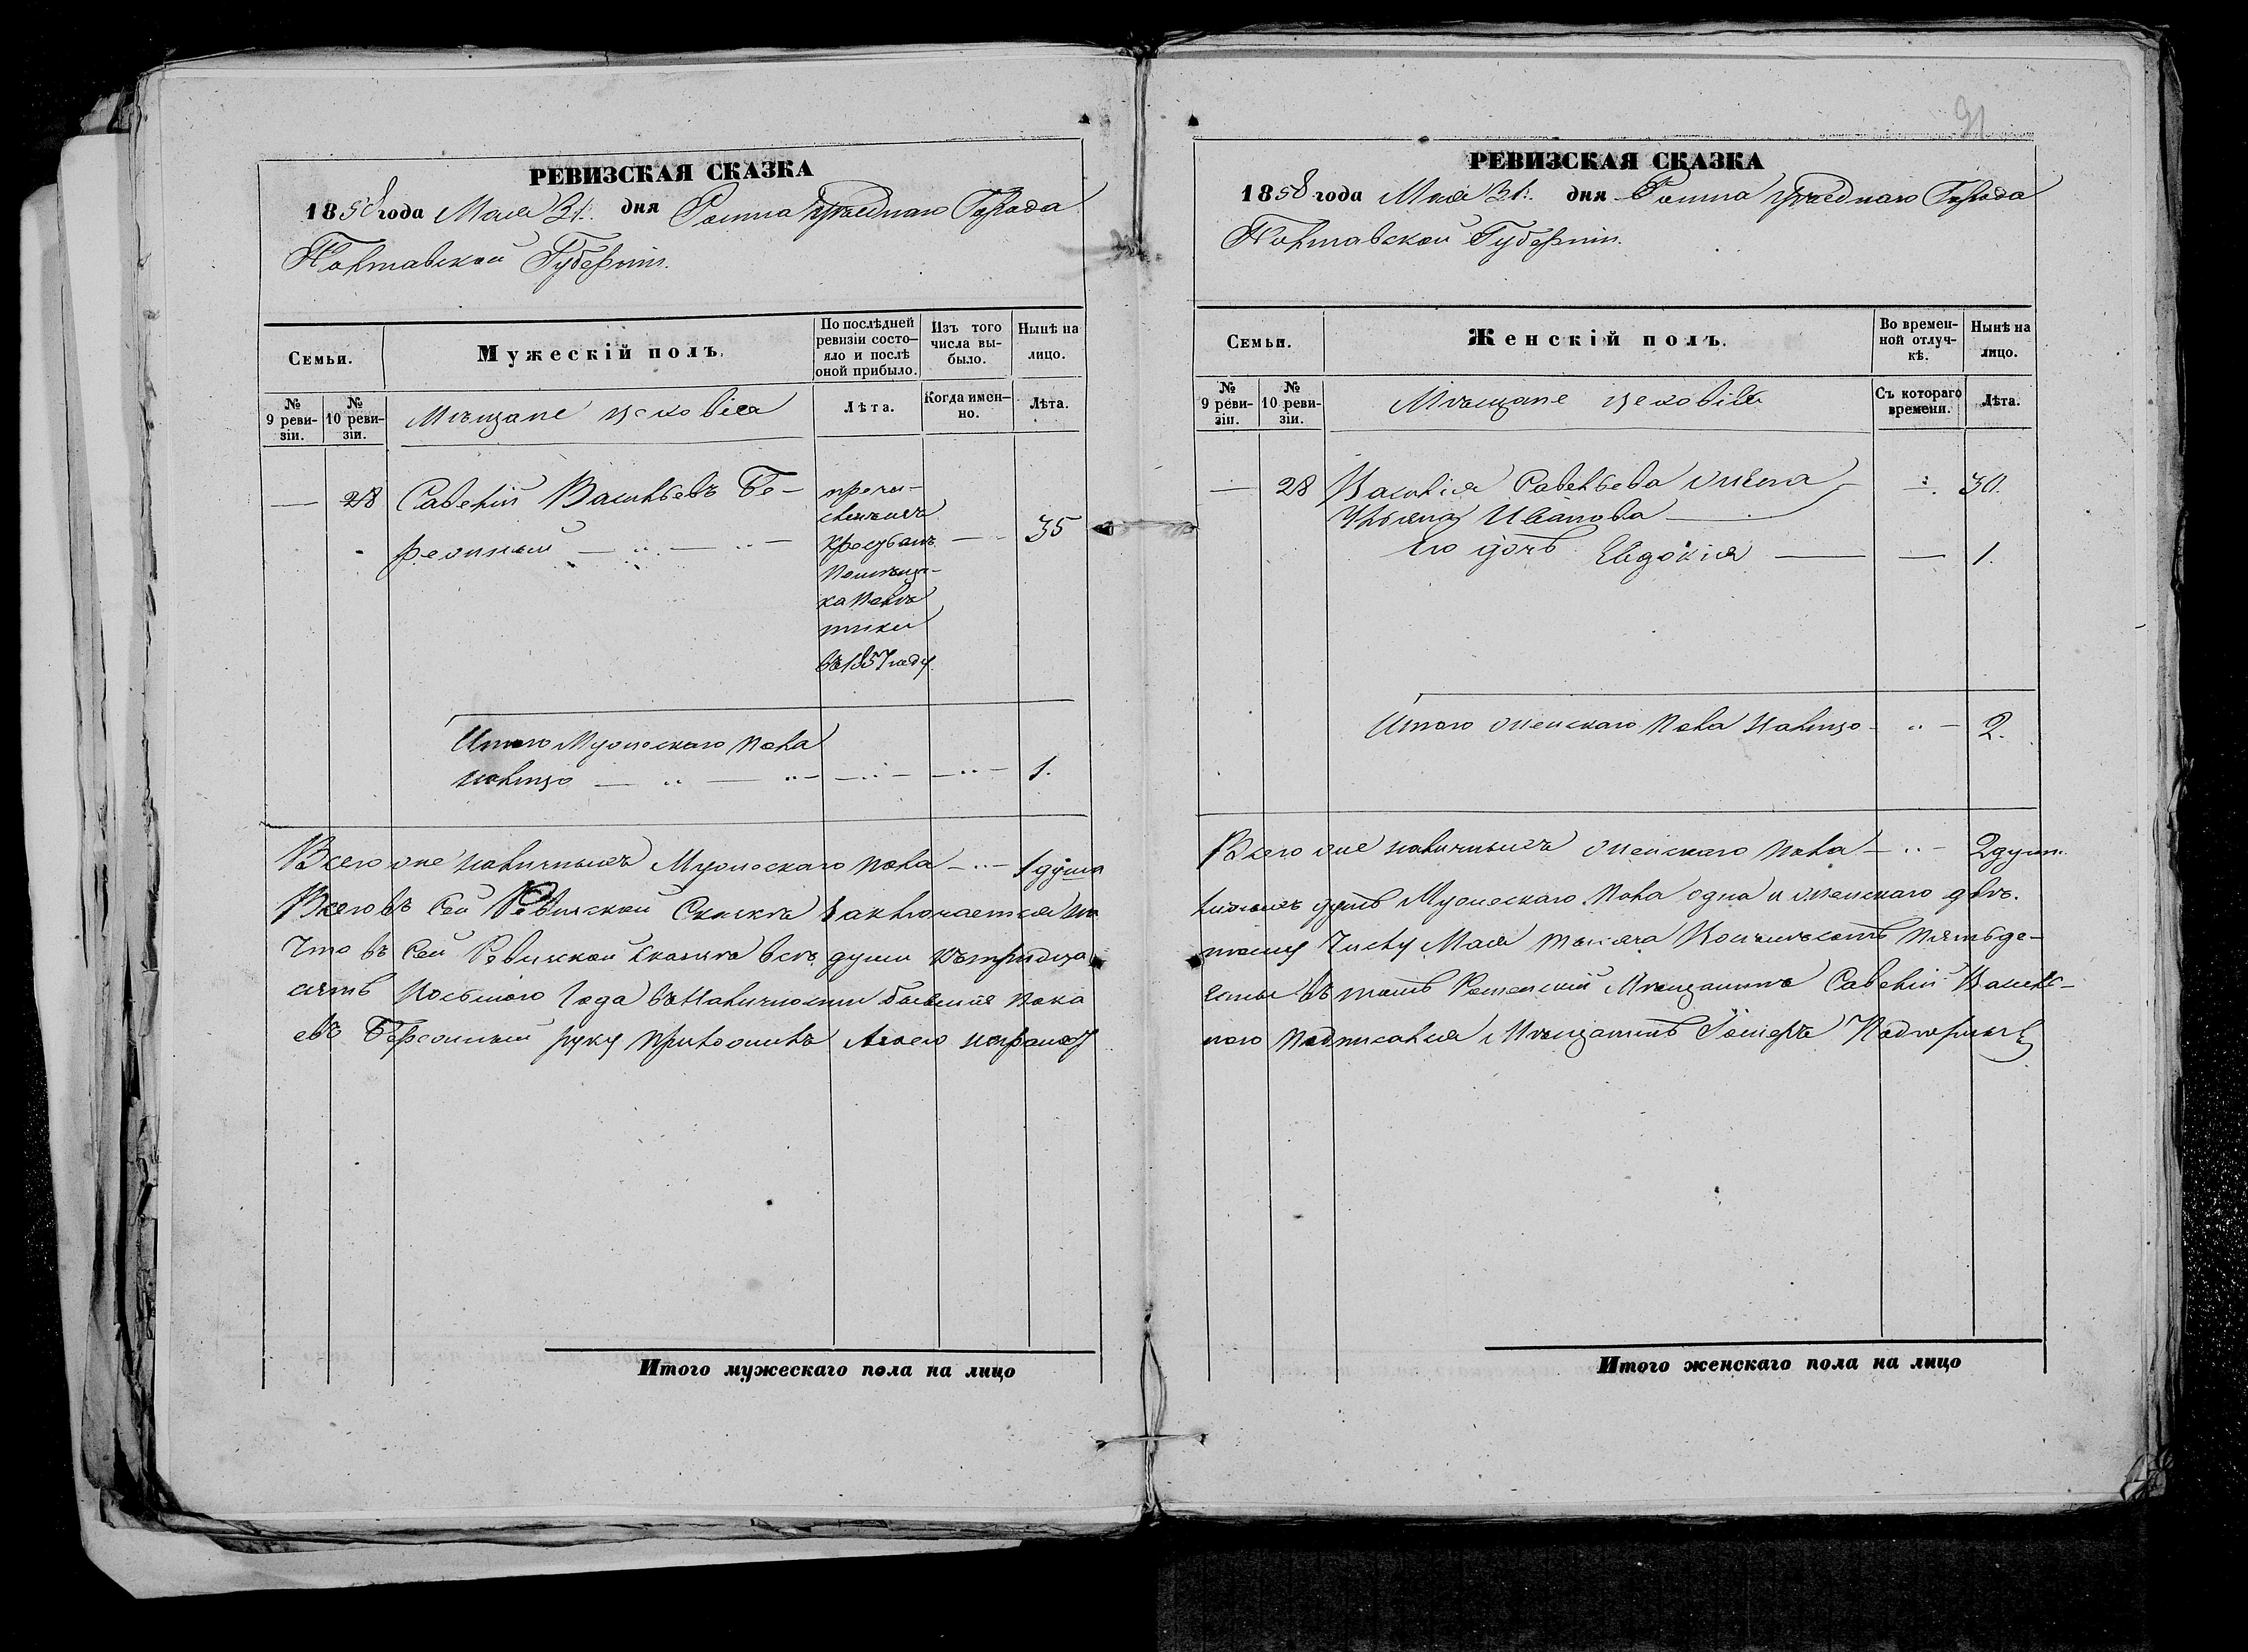 РЕВИЗСКАЯ СКАЗКА
1858 года Мая 31. дня Ромна уѣзднаго Города
Полтавской Губерніи.
Семьи.
Мужескій полъ.
По послѣдней ревизіи состо-
яло и послѣ
оной прибыло.
Изъ того
числа вы-
было.
Нынѣ на
лицо.
№
9 реви-
зіи.
№
10 реви-
зіи.
Мѣщане
Лѣта.
Когда имен-
но.
Лѣта.
— 28 Савелій Васильевъ Бе-
режный 35
въ 1857 году
Итого Мужескаго пола
налицо 1.
Всего же наличныхъ Мужескаго пола — 1 душа
Всего въ сей Ревизской Сказкѣ заключается на
Что въ сей Ревизской сказкѣ всѣ души къ тридца
сятъ восьмого года въ наличности бывшія пока
евъ Бережный руку приложилъ а
Итого мужескаго пола на лицо
91
РЕВИЗСКАЯ СКАЗКА
1858 года Мая 31. дня Ромна уѣзднаго Города
Полтавской Губерніи.
Семьи.
Женскій полъ.
Во времен-
ной отлуч-
кѣ.
Нынѣ на
лицо.
№
9 реви-
зіи.
№
10 реви-
зіи.
Мѣщане
Съ котораго
времени.
Лѣта.
— 28 Савельева жена 30.
Ульяна Иванова
Его дочь Евдокія — — 1.
Итого женскаго пола налицо 2.
Всего же наличныхъ женскаго пола 2 души.
личныхъ душъ Мужескаго пола одна и женскаго двѣ.
числу Мая тысяча восемьсотъ пятьде-
заны въ томъ Роменскій Мѣщанинъ Савелій Василь-
подписался Мѣщанинъ
Итого женскаго пола на лицо